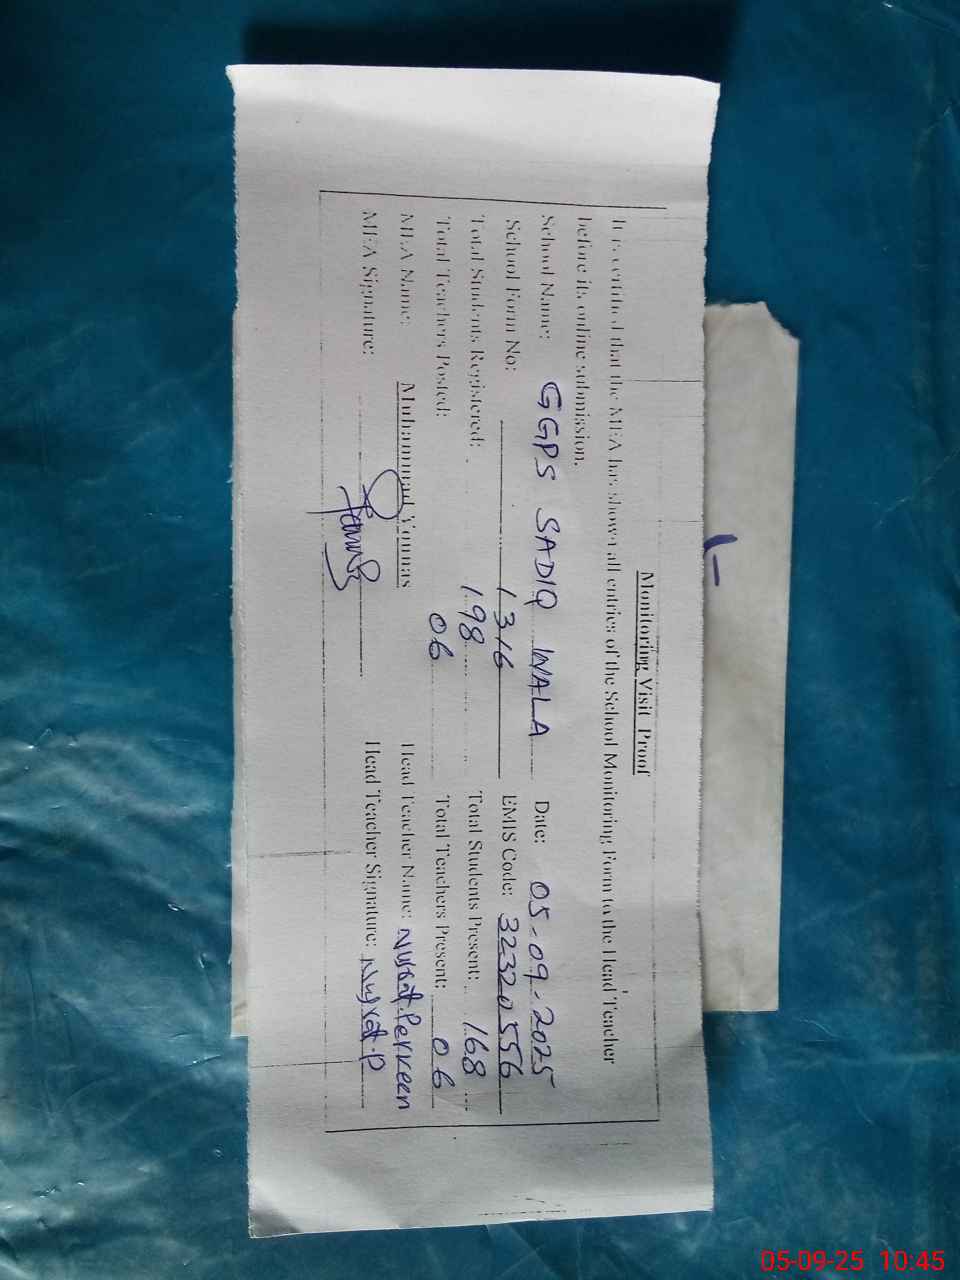 Monitoring Visit Proof
It is certified that the MEA has shown all entries of the School Monitoring Form to the Head Teacher
before its online submission.
School Name: GGPS SADIQ WALA Date: 05-09-2025
School Form No: 1316 EMIS Code: 32320556
Total Students Registered: 198 Total Students Present: 168
Total Teachers Posted: 06 Total Teachers Present: 06
MEA Name: Muhammad Younas Head Teacher Name: Nusrat Perveen
MEA Signature: Head Teacher Signature: Nusrat.P
05-09-25 10:45